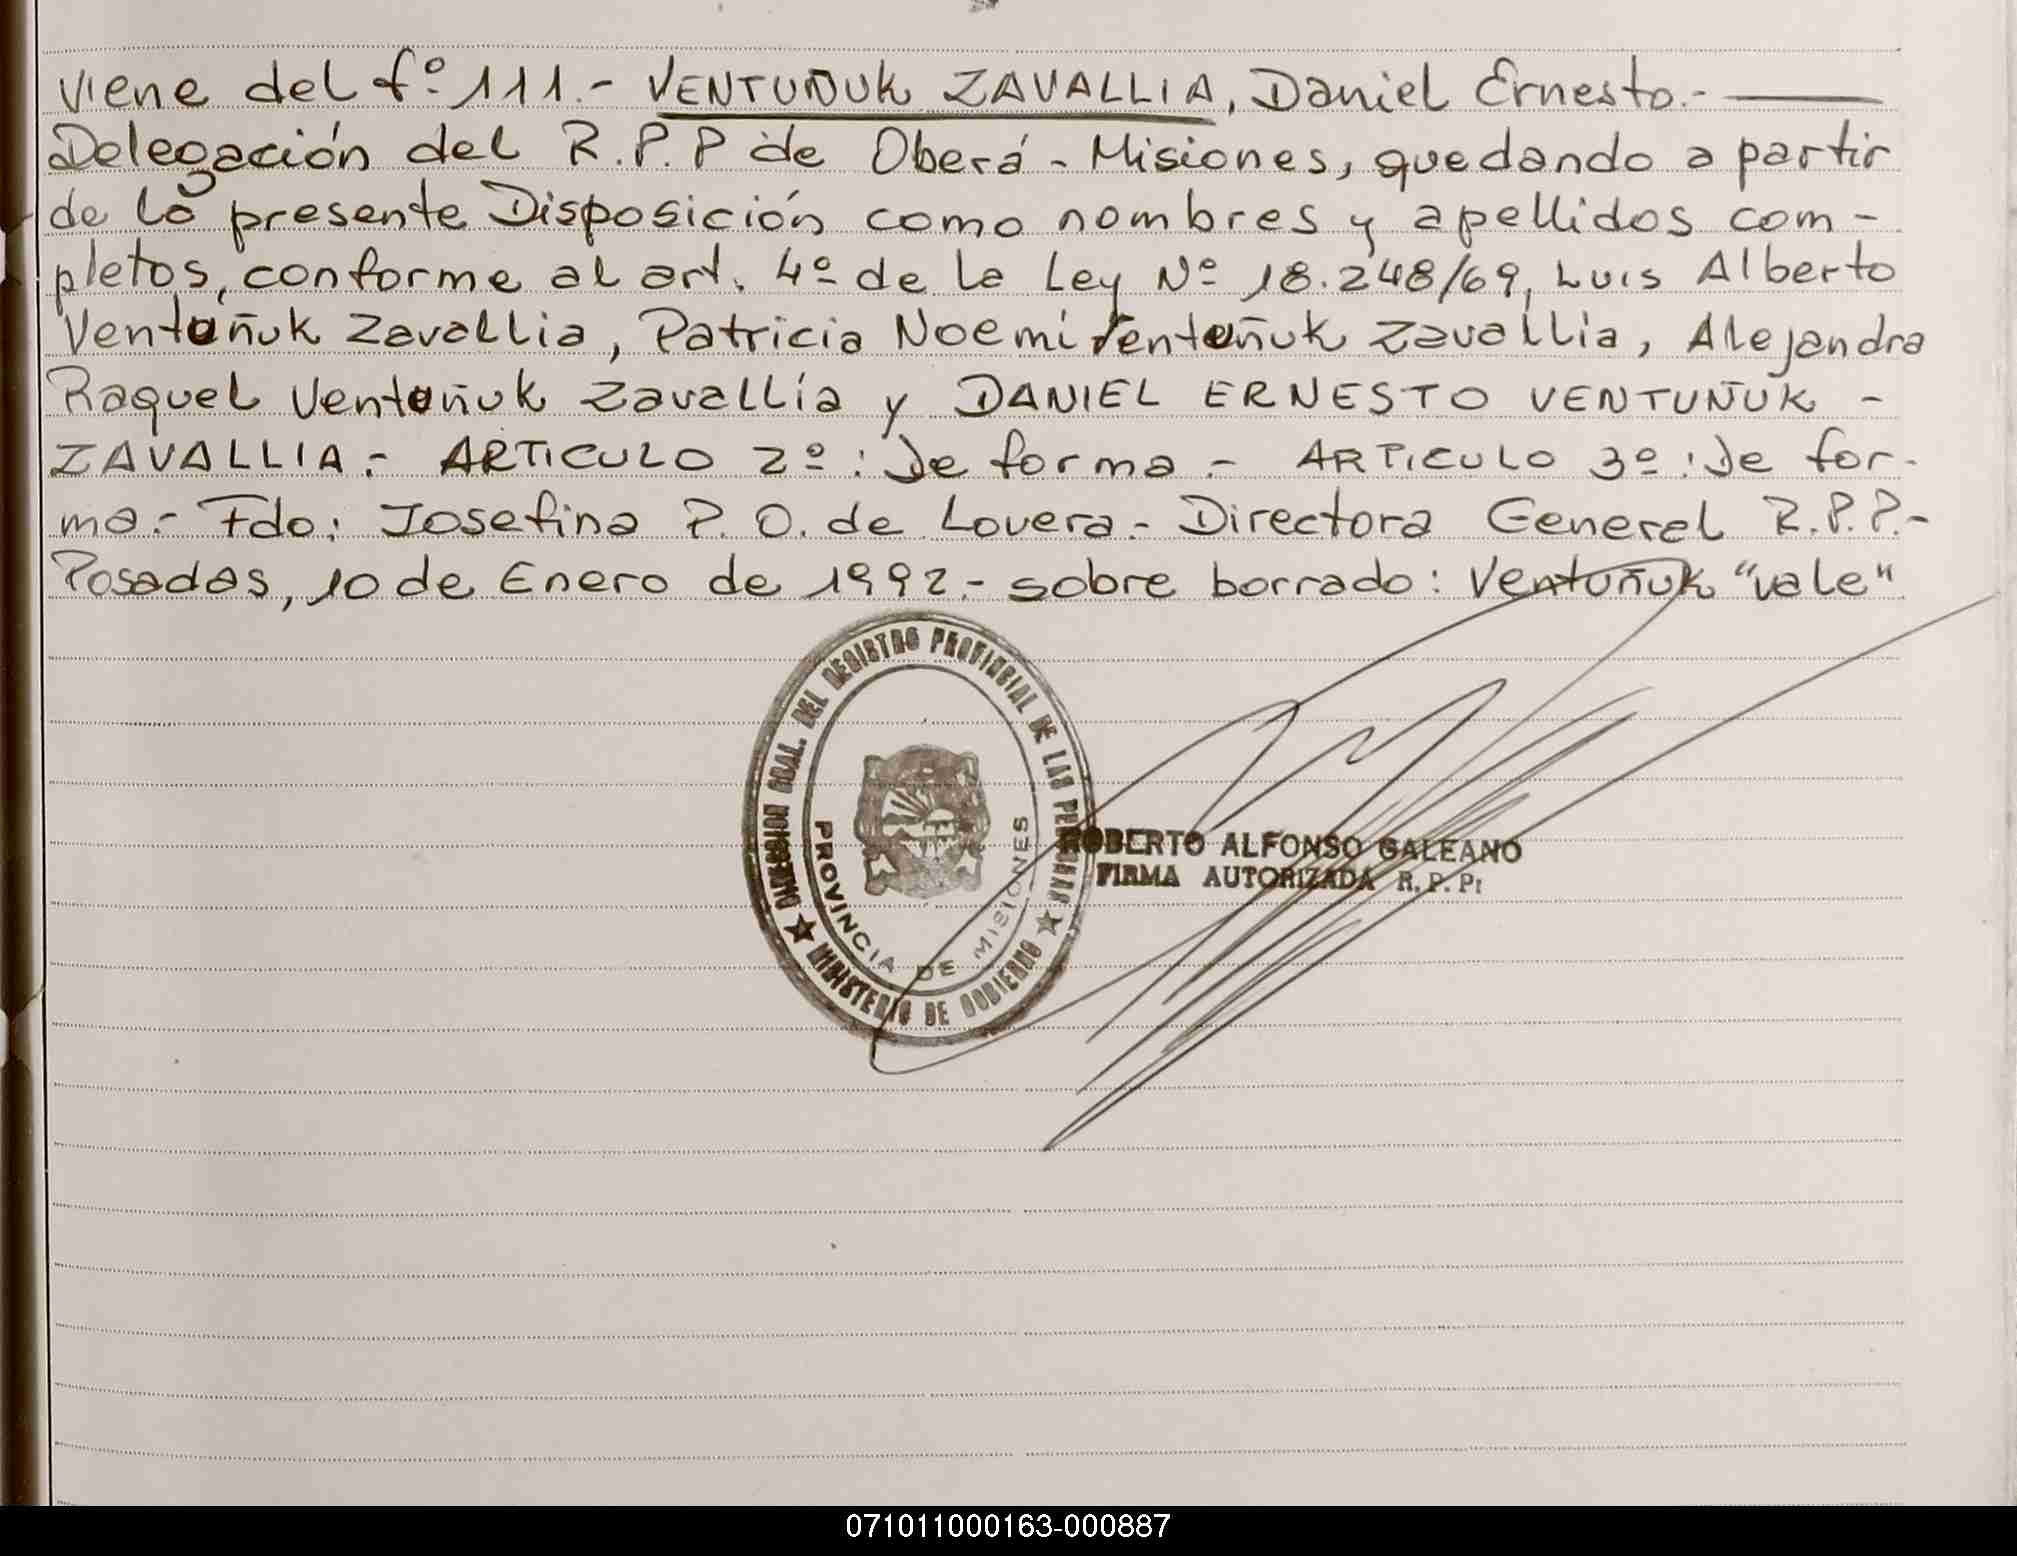 Viene del fº 111.- VENTUÑUK ZAVALLIA, Daniel Ernesto.-
Delegación del R.P.P de Oberá - Misiones, quedando a partir
de la presente Disposición como nombres y apellidos com-
pletos, conforme al art. 4º de la Ley Nº 18.248/69, Luis Alberto
Ventuñuk Zavallia, Patricia Noemí Ventuñuk Zavallia, Alejandra
Raquel Ventuñuk Zavallia y DANIEL ERNESTO VENTUÑUK -
ZAVALLIA.- ARTICULO 2º: De forma.- ARTICULO 3º: De for-
ma.- Fdo: Josefina P. O. de Lovera.- Directora General R.P.P.-
Posadas, 10 de Enero de 1992.- sobre borrado: Ventuñuk "vale"
DIRECCION GRAL. DEL REGISTRO PROVINCIAL DE LAS PERSONAS
MINISTERIO DE GOBIERNO
PROVINCIA DE MISIONES
ROBERTO ALFONSO GALEANO
FIRMA AUTORIZADA R.P.P.
071011000163-000887